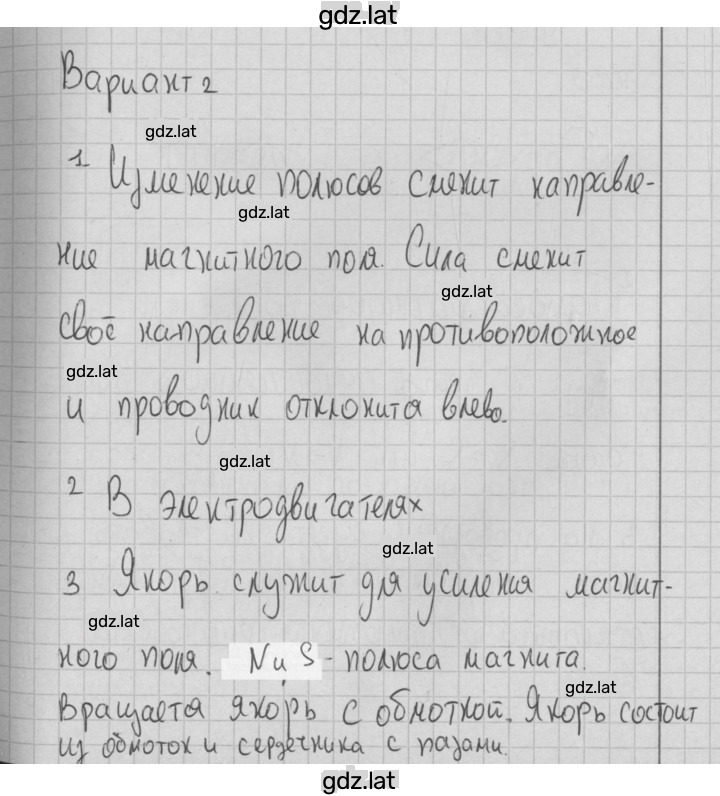 gdz.lat
Вариант 2
gdz.lat
1 Изменение полюсов сменит направле-
gdz.lat
ние магнитного поля. Сила сменит
gdz.lat
своё направление на противоположное
gdz.lat
и проводник отклонится влево.
gdz.lat
2 В электродвигателях
gdz.lat
3 Якорь служит для усиления магнит-
gdz.lat
ного поля. N и S - полюса магнита.
gdz.lat
Вращается якорь с обмоткой. Якорь состоит
из обмоток и сердечника с пазами.
gdz.lat